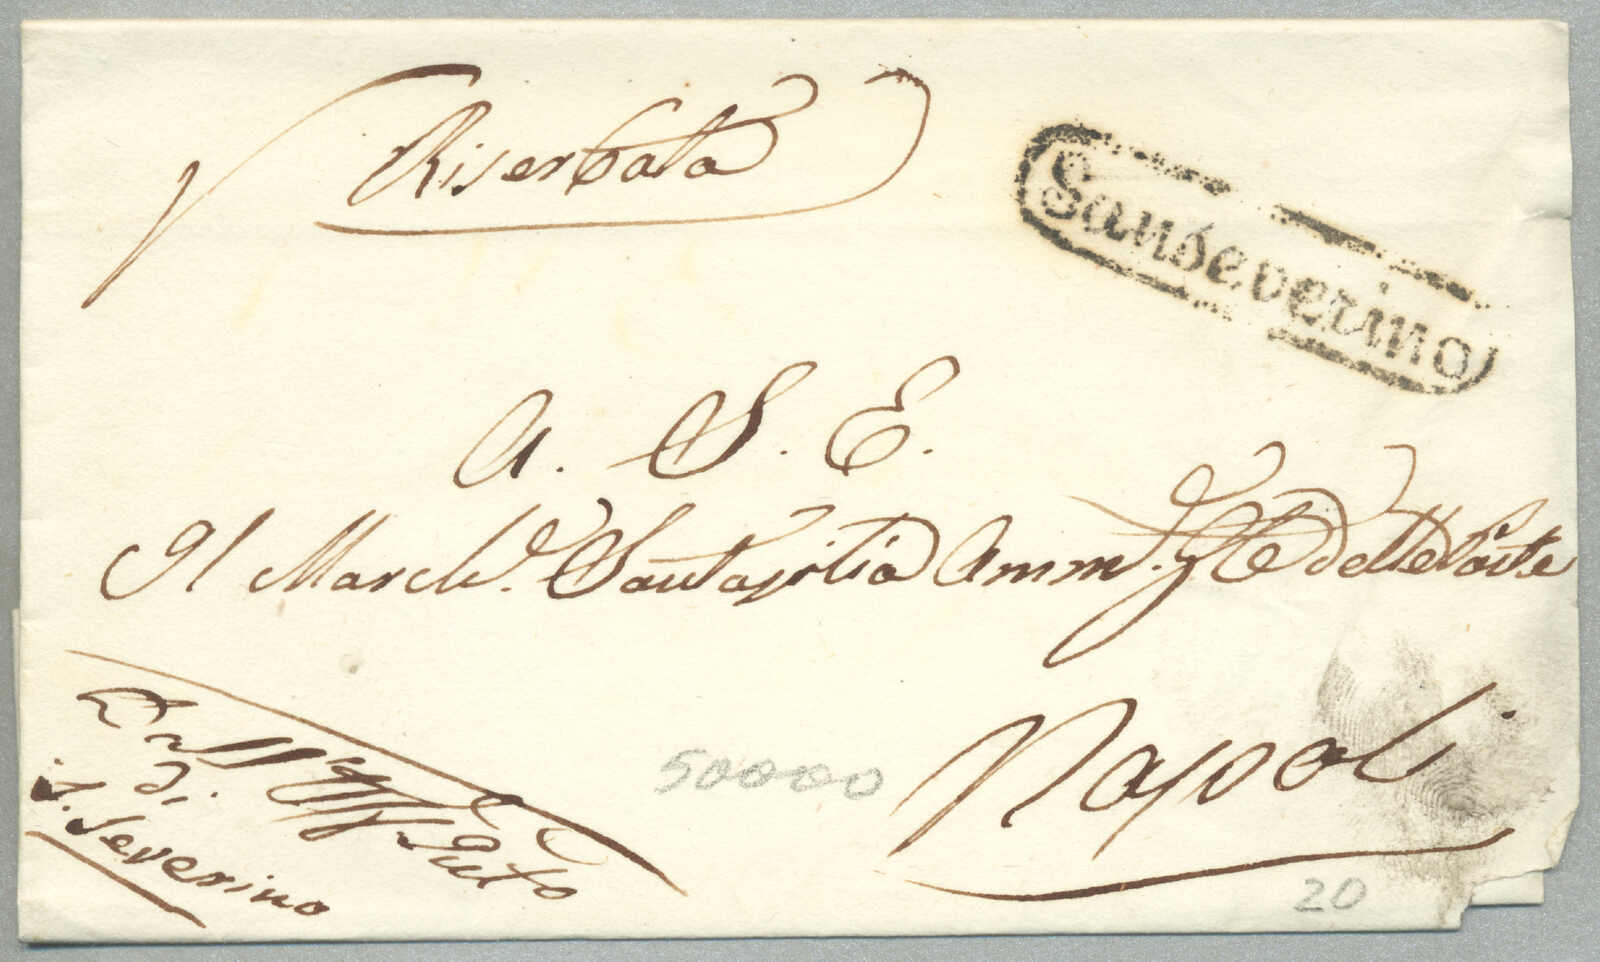 Riserbata
Sanseverino
A. S. E.
Il March.e Santasilia Amm.re Gle delle Poste
Napoli
Dall'Off.
di
S. Severino
50000
20